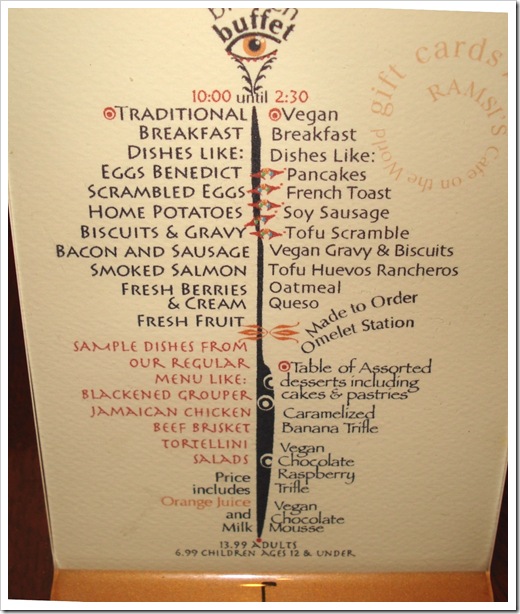 buffet
10:00 until 2:30
TRADITIONAL
BREAKFAST
DISHES LIKE:
EGGS BENEDICT
SCRAMBLED EGGS
HOME POTATOES
BISCUITS & GRAVY
BACON AND SAUSAGE
SMOKED SALMON
FRESH BERRIES
& CREAM
FRESH FRUIT
SAMPLE DISHES FROM
OUR REGULAR
MENU LIKE:
BLACKENED GROUPER
JAMAICAN CHICKEN
BEEF BRISKET
TORTELLINI
SALADS
Price
includes
Orange Juice
and
Milk
Vegan
Breakfast
Dishes Like:
Pancakes
French Toast
Soy Sausage
Tofu Scramble
Vegan Gravy & Biscuits
Tofu Huevos Rancheros
Oatmeal
Queso
Made to Order
Omelet Station
Table of Assorted
desserts including
cakes & pastries
Caramelized
Banana Trifle
Vegan
Chocolate
Raspberry
Trifle
Vegan
Chocolate
Mousse
13.99 ADULTS
6.99 CHILDREN AGES 12 & UNDER
gift cards
RAMSI'S
Cafe on the World